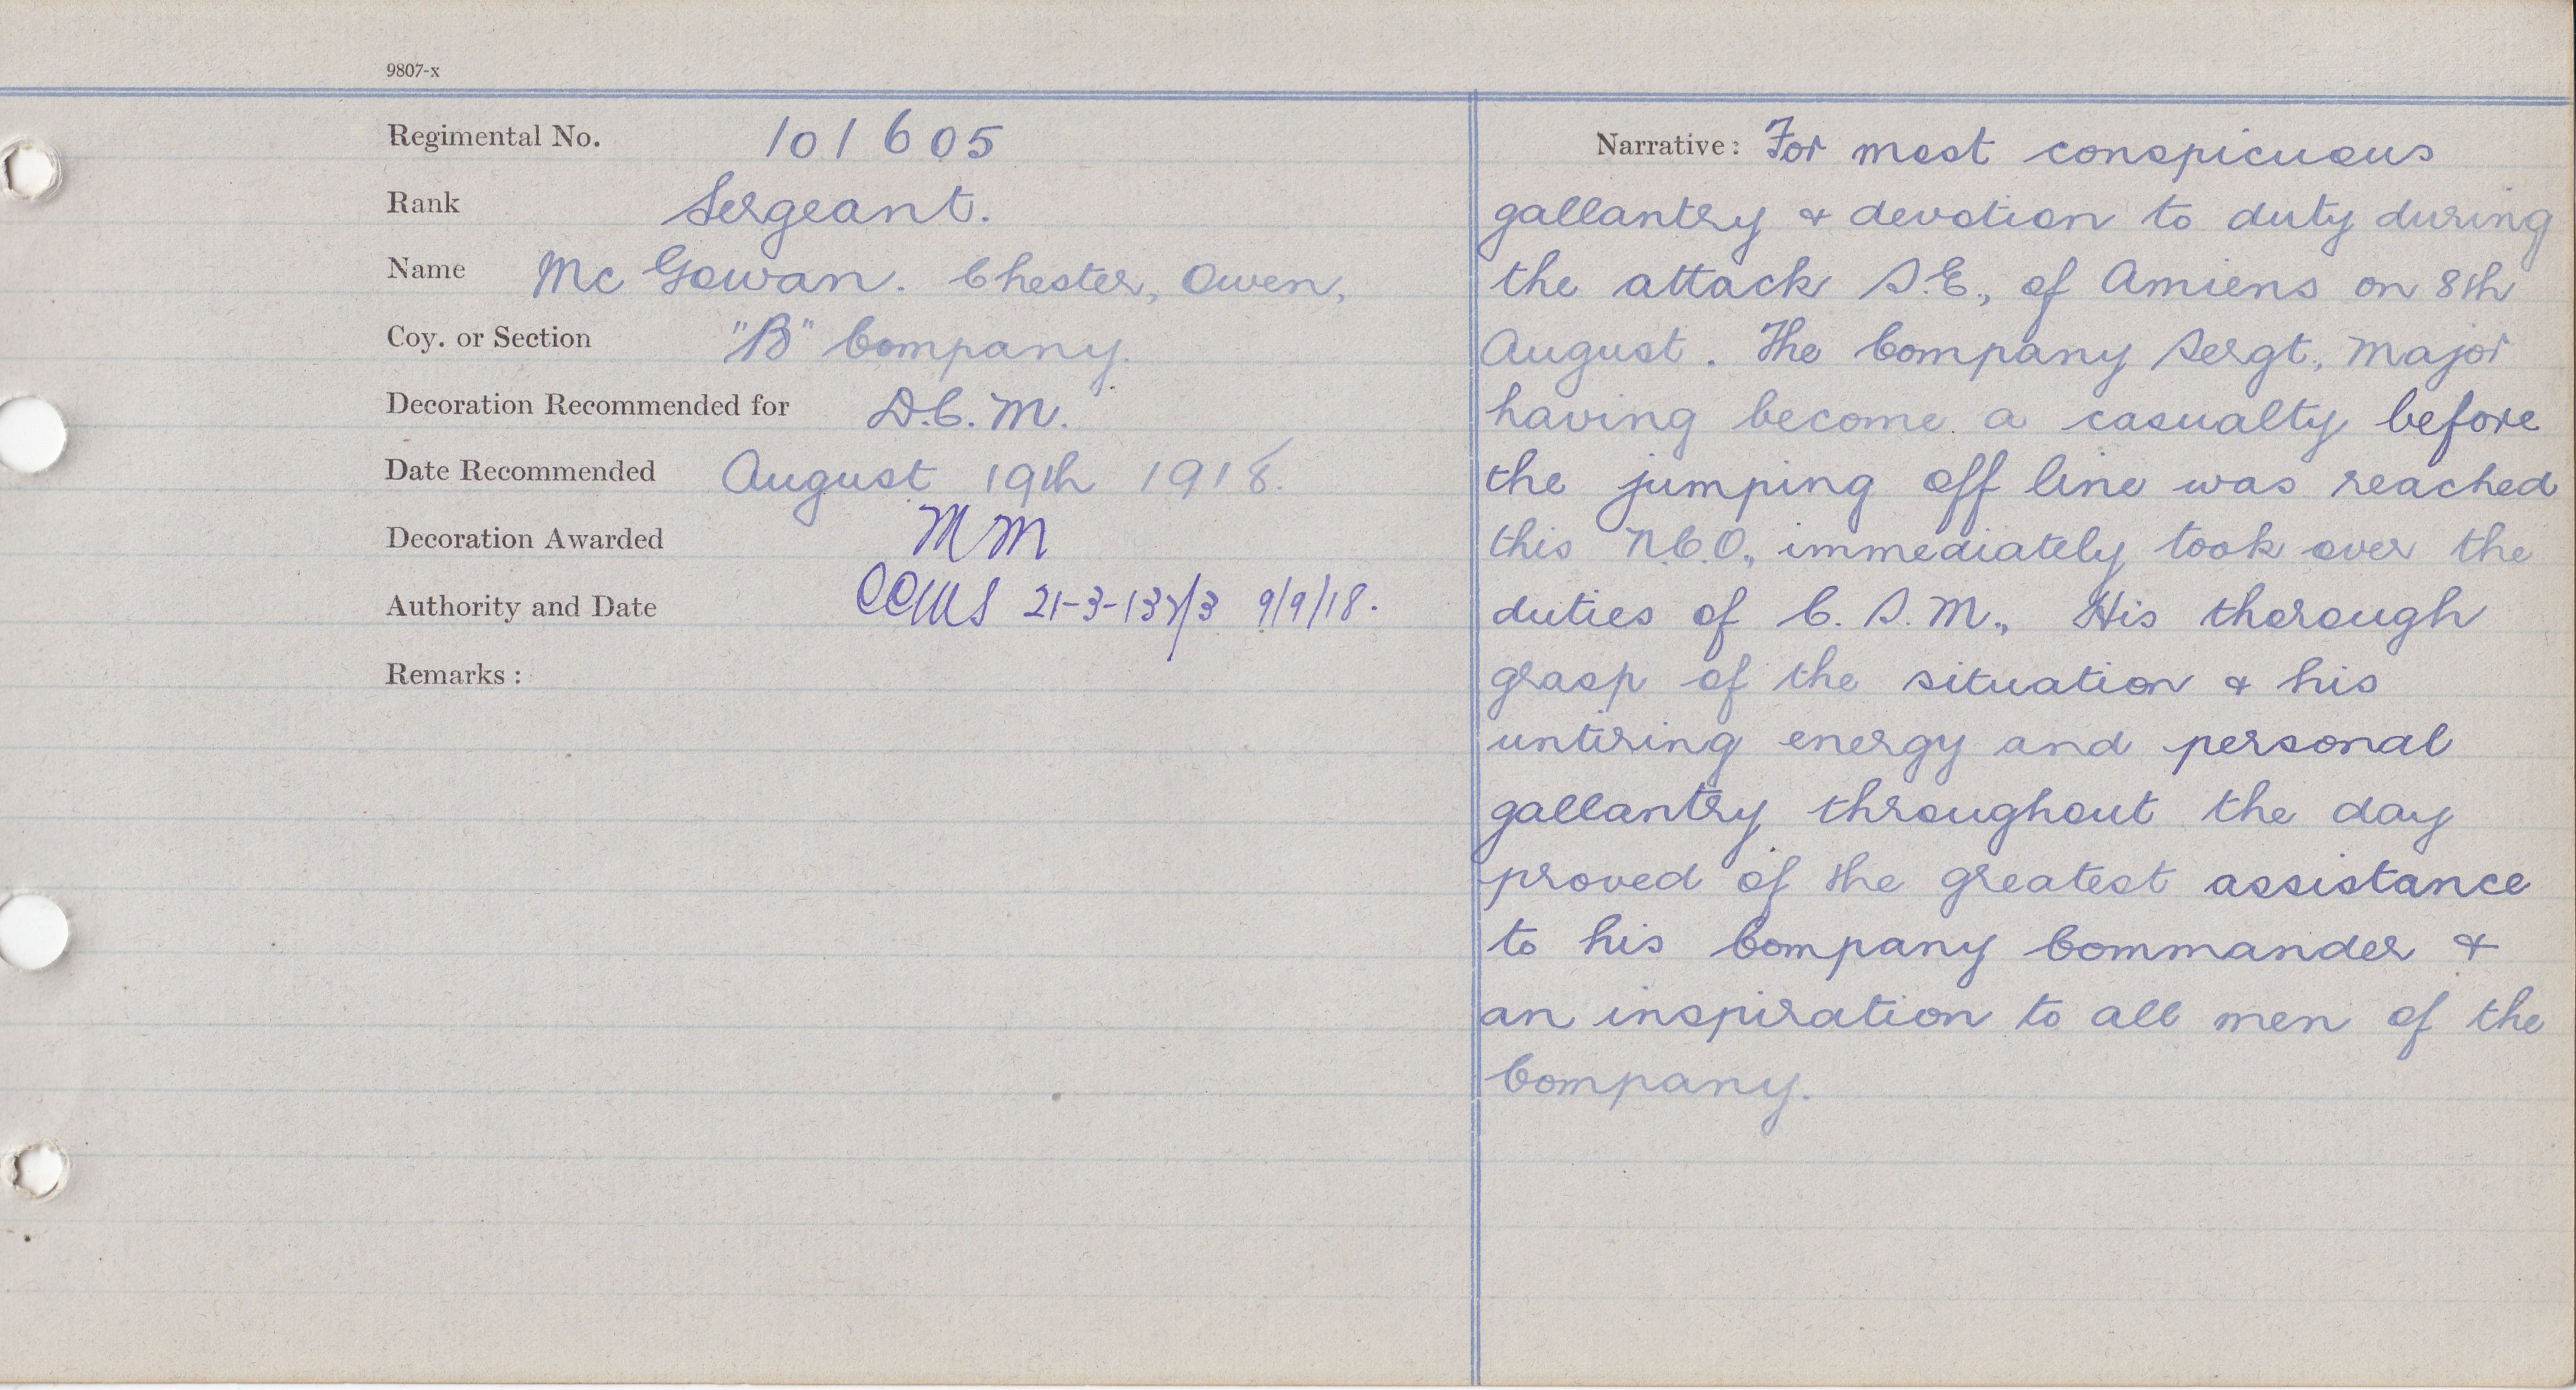 9807-x
Regimental No. 101605
Rank Sergeant.
Name Mc Gowan. Chester, Owen,
Coy. or Section "B" Company.
Decoration Recommended for D.C.M.
Date Recommended August 19th 1918.
Decoration Awarded MM
Authority and Date 21-3-137/3 9/9/18.
Remarks :
Narrative: For most conspicuous
gallantry & devotion to duty during
the attack S.E., of Amiens on 8th
August. The Company Sergt., Major
having become a casualty before
the jumping off line was reached
this N.C.O., immediately took over the
duties of C.S.M., His thorough
grasp of the situation & his
untiring energy and personal
gallantry throughout the day
proved of the greatest assistance
to his Company Commander &
an inspiration to all men of the
Company.